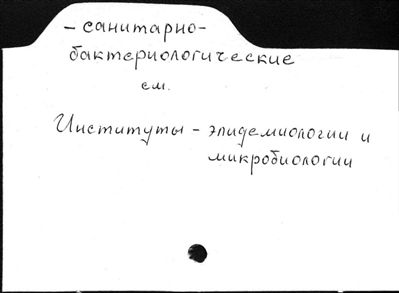 - санитарно-
бактериологические
см.
Институты - эпидемиологии и
микробиологии